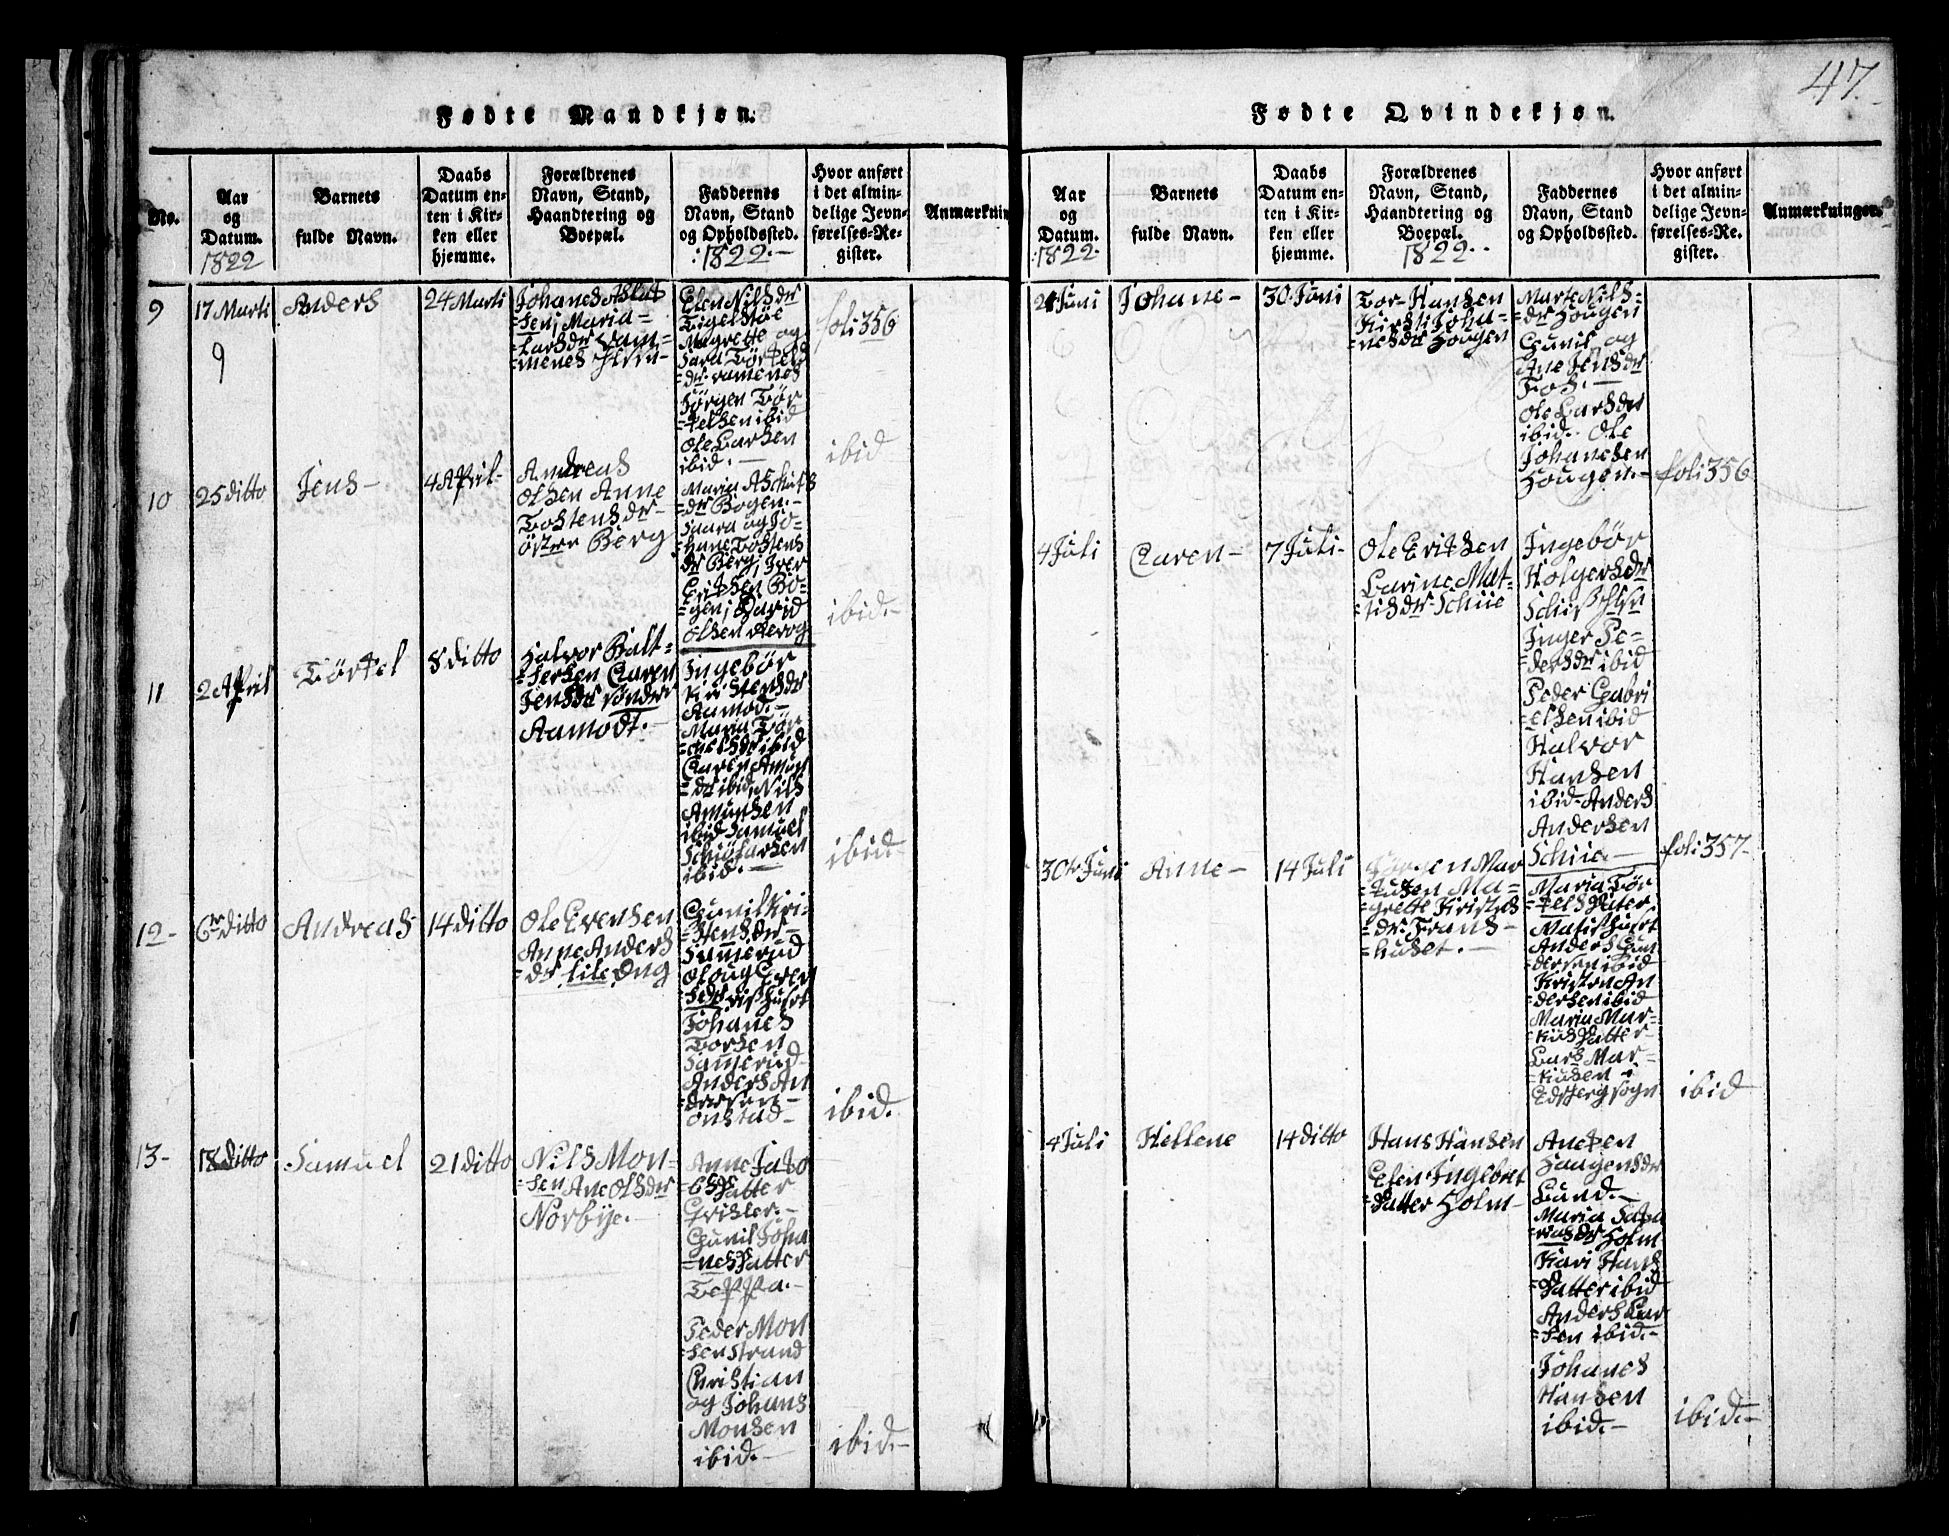 47.
Fødte Mandkjøn.
No.
Aar
og
Datum.
1822
Barnets
fulde Navn.
Daabs
Datum en-
ten i Kir-
ken eller
hjemme.
Forældrenes
Navn, Stand,
Haandtering og
Boepæl.
Faddernes
Navn, Stand
og Opholdssted.
:1822.-
Hvor anført
i det almin-
delige Jevn-
førelses-Re-
gister.
Anmærknin
9
17 Marti
9
Anders
24 Marti
Johanes Aslat
=sen, Maria
Larsdr Vam=
=menes
Elen Nilsdr
Tigelstøe
Magrete og
Sara Tørkels
=dr. vamenes
Jørgen Tør
=kelsen ibid
Ole Larsen
ibid.-
foli 356
ibid
10
25 ditto
Jens-
4 April-
Andreas
Olsen Anne
Tostensdr-
öster Berg
Maria
=dr Bogen.-
Saara og Jo-
hane Tostens
dr Berg, Iver
Eriksen Bo-
=gen, David
Olsen
ibid.-
11
2 April
Törkel
8 ditto
Halvor Balt-
=sersen Caren
Jensdr sönder
Aamodt.-
Ingebör
Kristensdr
Aamod.-
Maria Tör
=kelsdr ibid
Caren Amun
=dr ibid, Nils
Amunsen
ibid Samuel
ibid.-
ibid-
12-
6te ditto
Andreas
14 ditto
Ole Evensen
Anne Anders
=dr lile Eng
Gunil Kri-
=stensdr-
Sannerud
Oloug Even
Johanes
Torsen
Sannerud-
Anders An
dersen-
Onstad-
ibid.
13-
18 ditto
Samuel
21 ditto
Nils Mon=
=sen Ane Olsdr
Norbye.-
Anne Jako
=bsdatter
Grisler.-
Gunil Joha
=nesdatter
Toppa.-
Peder Mon
=sen Strand
Christian
og Johans
Monsen
ibid.-
ibid.-
Fødte Qvindekjøn.
Aar
og
Datum.
:1822.
Barnets
fulde Navn.
Daabs
Datum en-
ten i Kir-
ken eller
hjemme.
Forældrenes
Navn, Stand,
Haandtering og
Boepæl.
1822.-
Faddernes
Navn, Stand
og Opholdssted.
Hvor anført
i det almin-
delige Jevn-
førelses-Re-
gister.
Anmærkninger.
Juni
Johane-
30 Juni
Tor Hansen
Kirsti Joha-
=nesdr Hougen
Marte Nils-
=dr Hougen
Gunil og
Ane Jensdr
Fos.-
Ole Larsdr
ibid. Ole
Johanesen
Hougen.-
foli 356
4 Juli
Caren-
7 Juli-
Ole Eriksen
Karine Mat-
=tisdr Schiie
Ingebör
Holgersdr
Inger Pe-
dersdr ibid
Peder Gabri
=elsen ibid
Halvor
Hansen
ibid. Anders
Andersen
Schiie.-
foli 357-
30te Juni
Anne-
14 Juli
Jørgen Mar
=kusen Ma-
grette Kristens
=dr. Frans-
huset.-
Maria Tör
=kelsdater.
Anders Gun
dersen ibid
Kristen An
dersen ibid
Maria Mar-
kusdatter-
Lars Mar-
=kusen i
Edsberg sogn
ibid
4 Juli
Hellene
14 ditto
Hans Hansen
Elen Ingebret
=datter Holm-
Anepen
Haagensdr
Lund.-
Maria Saka
riasdr Holm
Kari Hans
datter ibid
Anders Lar
=sen ibid.-
Johanes
Hansen
ibid.-
ibid.-